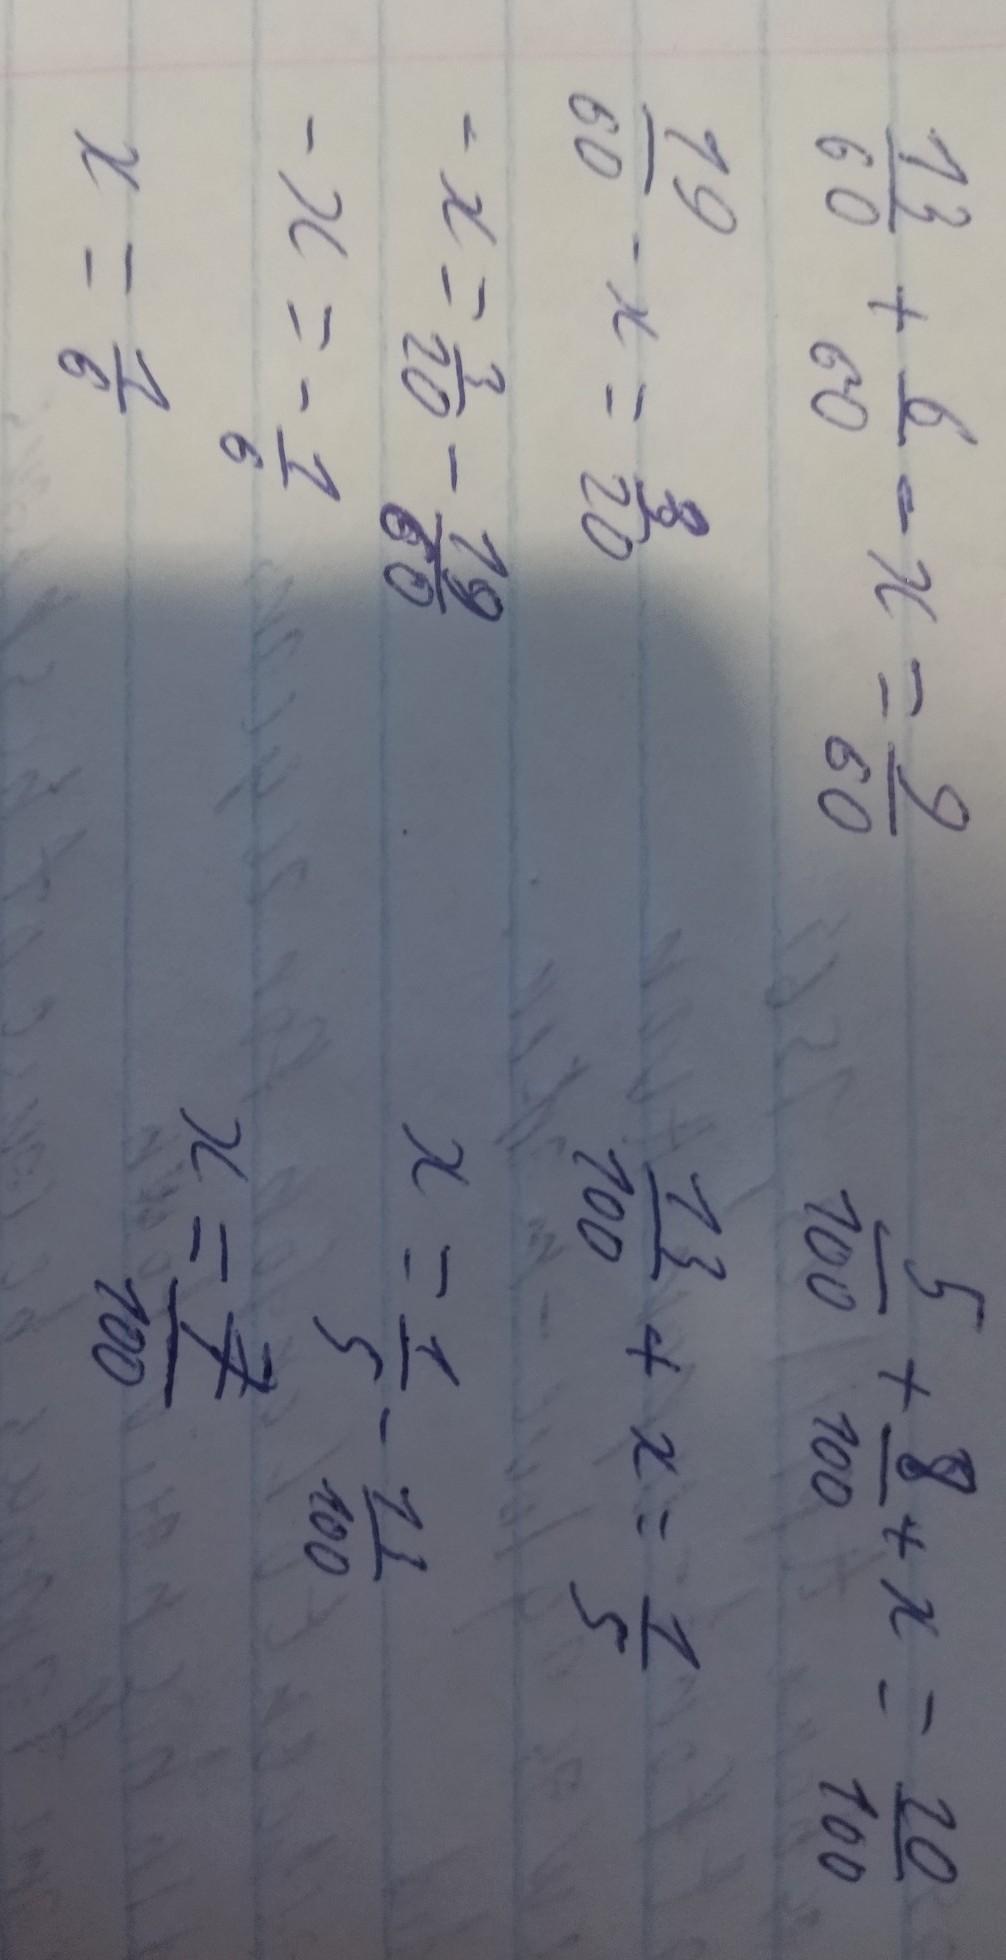 13/60 + 6/60 - x = 9/60
19/60 - x = 3/20
- x = 3/20 - 19/60
- x = - 1/6
x = 1/6
5/100 + 8/100 + x = 20/100
13/100 + x = 1/5
x = 1/5 - 13/100
x = 7/100